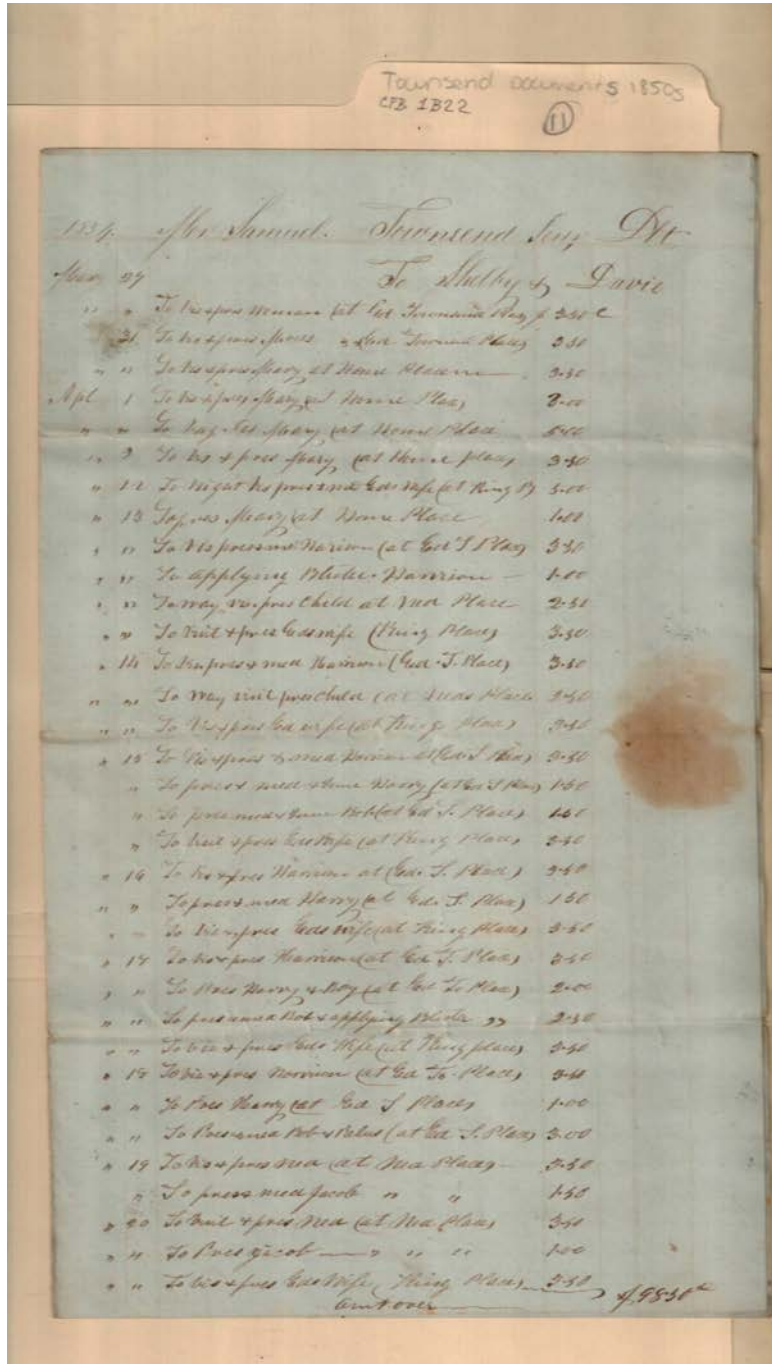 Townsend Documents 1850s
CFB 1B22
11
1854. Mr Samuel. Townsend Senr Dbt
Mar 27 To Shelby & Davie
" " To vis & pres Woman (at Ed Townsend 3.50 c
31 To vis & pres Townsend Place) 3.50
" " To vis & pres Mary at Home Place 3.50
Apl 1 To vis & pres Mary (at Home Place) 3.00
" " To Mary (at Home Place 5.00
" 9 To vis & pres Mary (at Home place) 3.50
" 12 To Night vis pres med Eds Wife (at King P) 5.00
" 13 To pres Mary (at Home Place 1.00
" " To vis pres med Harrison (at Ed T Place) 3.50
" " To applying Blister Harrison 1.00
" " To way vis pres Child at Ned Place 2.50
" " To Visit & pres Eds wife (King Place) 3.50
" 14 To vis pres & med Harrison (Ed. T. Place) 3.50
" " To Way visit pres Child (at Neds Place 2.50
" " To Vis & pres Ed wife (at King place) 3.50
" 15 To Vis & pres & med Harrison at (Ed. T Place) 3.50
" To pres & med Harry (at Ed T Place) 1.50
" To pres med Bob (at Ed T. Place) 1.50
" To visit & pres Eds Wife (at King Place) 3.50
" 16 To vis & pres Harrison at (Ed. T. Place) 3.50
" " To pres & med Harry (at Ed. T. Place) 1.50
" To vis & pres Eds wife (at King Place) 3.50
" 17 To vis & pres Harrison (at Ed T. Place) 3.50
" " To Pres Harry & Boy (at Ed T. Place) 2.00
" " To pres med Bob & applying Blister " 2.50
" " To vis & pres Eds Wife (at King place) 3.50
" 18 To vis & pres Harrison (at Ed T. Place) 3.50
" " To Pres Harry (at Ed T Place) 1.00
" " To Pres med Bob & (at Ed T. Place) 3.00
" 19 To vis & pres Ned (at Ned Place) 3.50
" To pres & med Jacob " " 1.50
" 20 To visit & pres Ned (at Ned Place) 3.50
" " To Pres Jacob " " " 1.00
" " To vis & pres Eds Wife, King Place, 3.50
Amt over $ 98.50 c